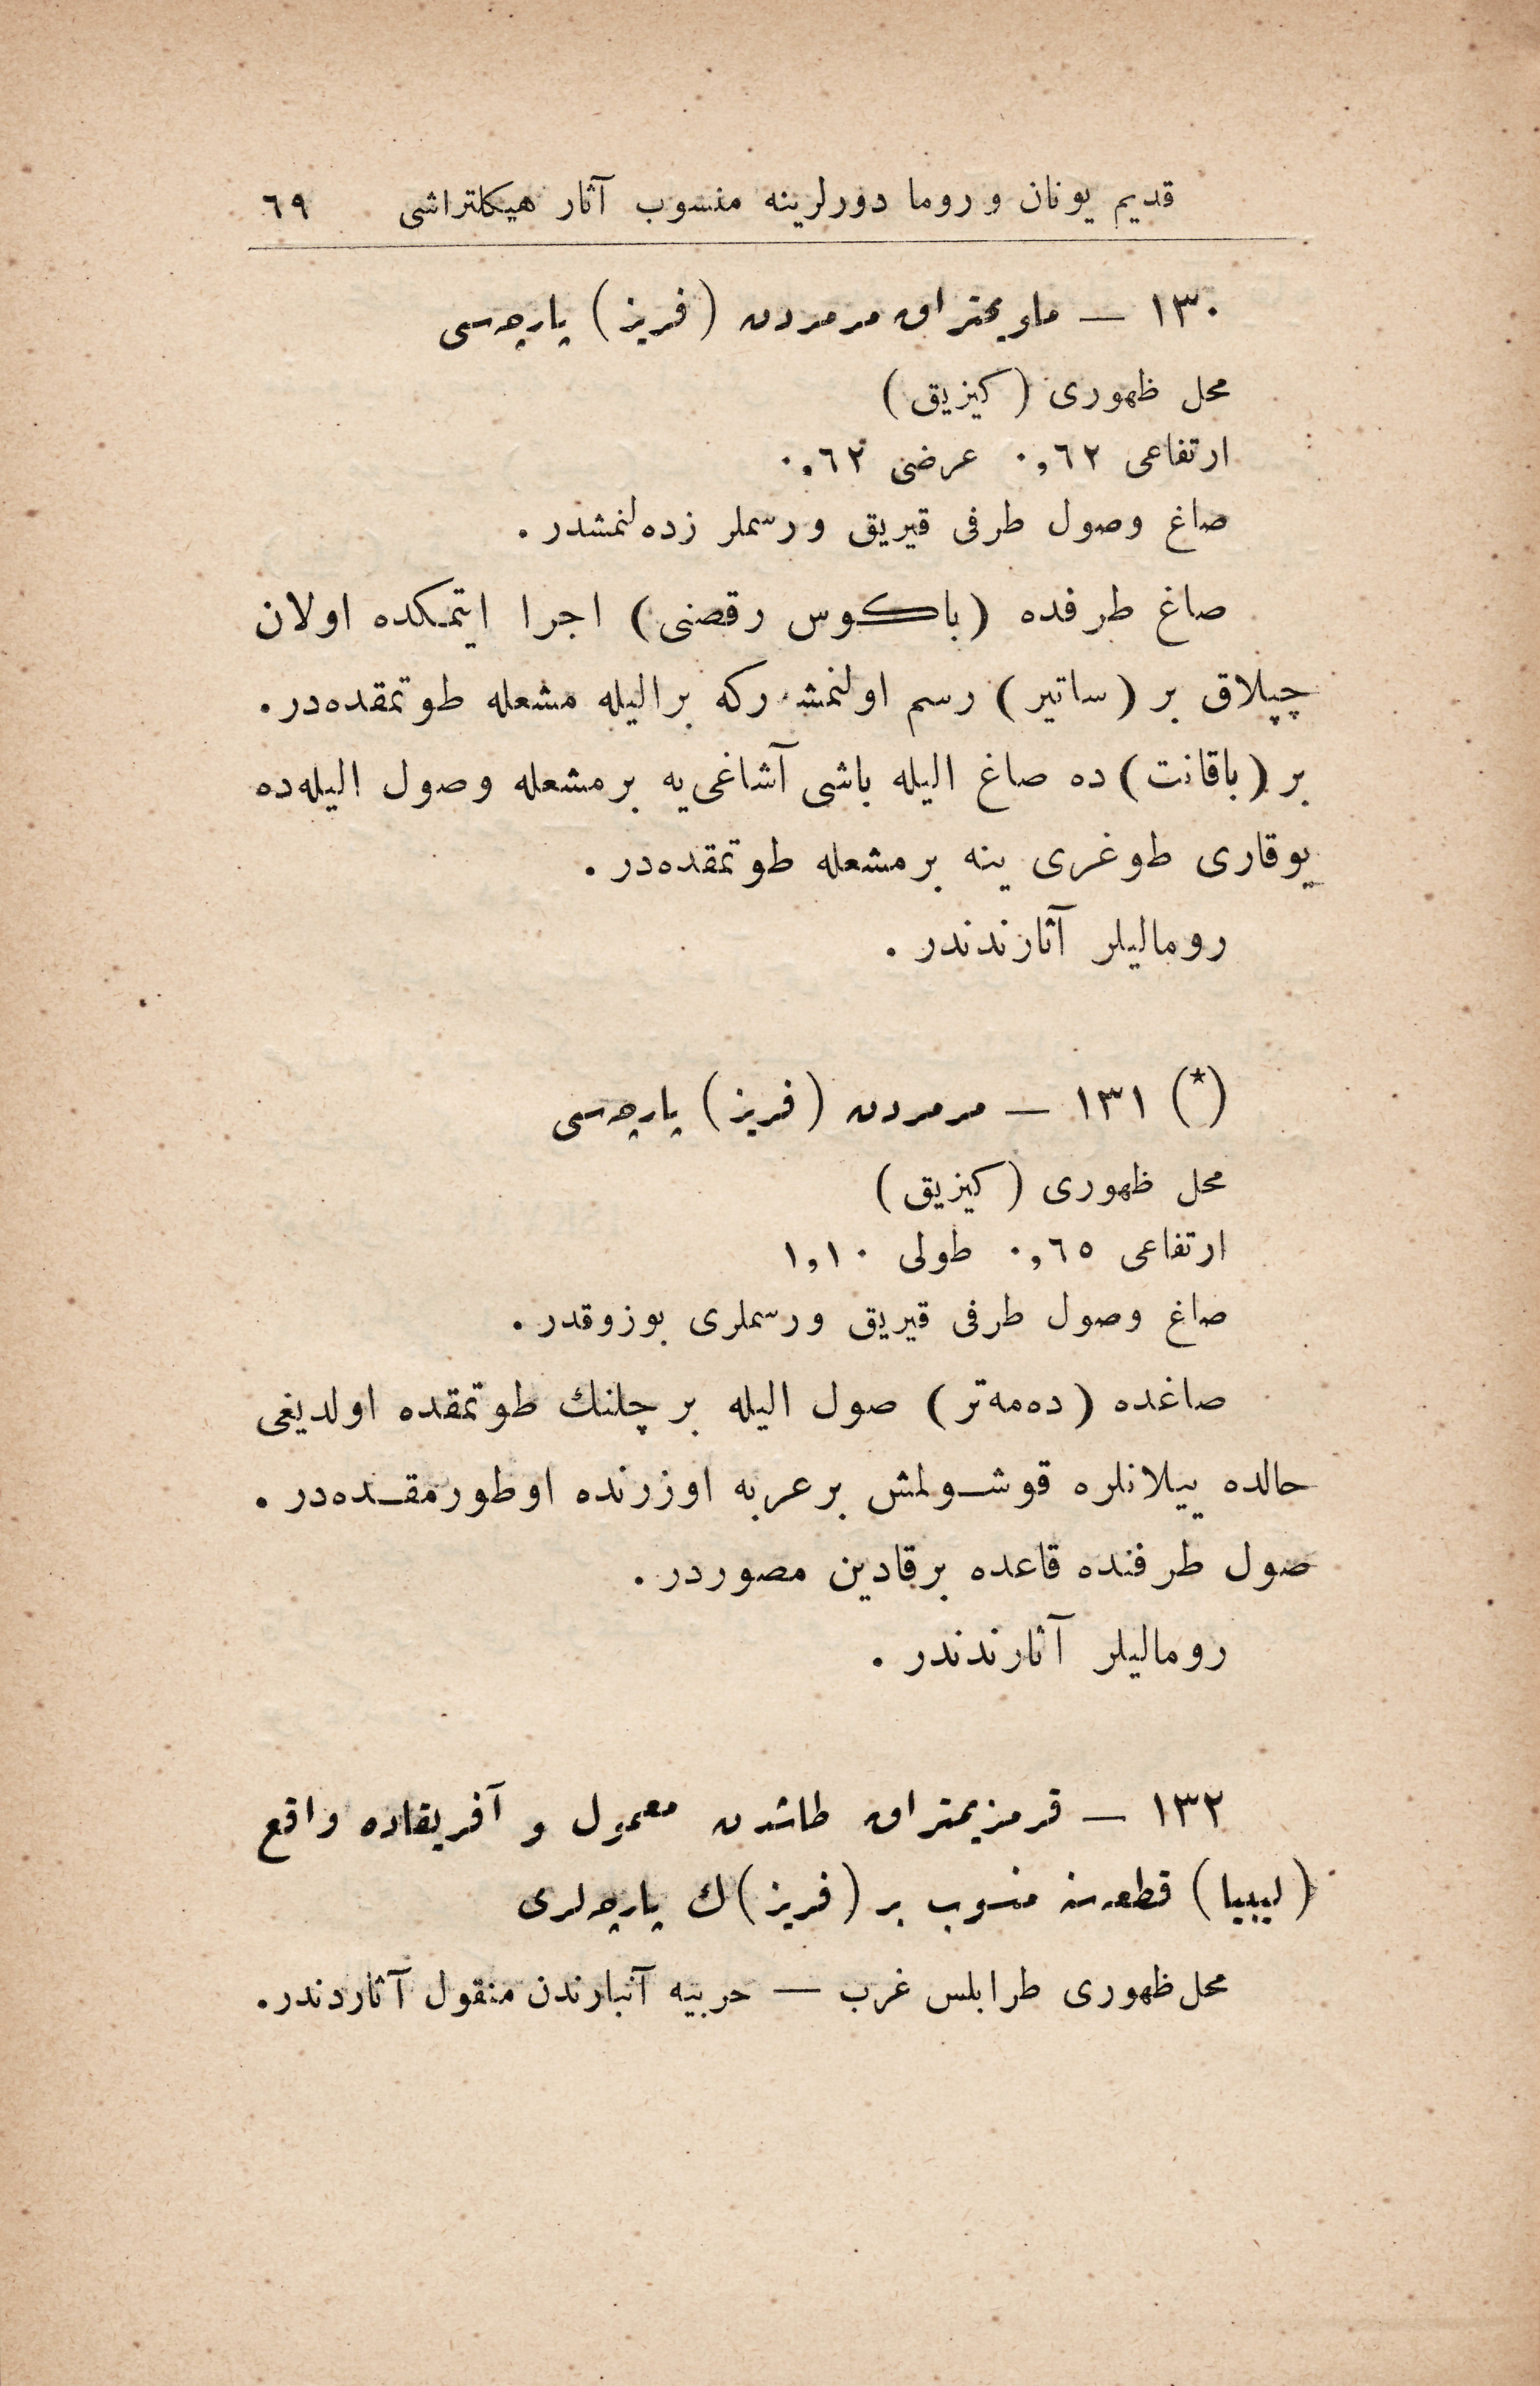 قديم يونان و روما دورلرينه منسوب آثار هيكلتراشى ٦٩
١٣٠ — ماويمتراق مرمردن (فريز) پارچه‌سى
محل ظهورى (كيزيق)
ارتفاعى ٠,٦٢ عرضى ٠,٦٢
صاغ وصول طرفى قيريق ورسملر زده‌لنمشدر .
صاغ طرفده (باكوس رقصنى) اجرا ايتمكده اولان
چپلاق بر (ساتير) رسم اولنمشدركه بر اليله مشعله طوتمقده‌در .
بر (باقانت) ده صاغ اليله باشى آشاغى‌يه بر مشعله وصول اليله‌ده
يوقارى طوغرى ينه بر مشعله طوتمقده‌در .
روماليلر آثارندندر .
(*) ١٣١ — مرمردن (فريز) پارچه‌سى
محل ظهورى (كيزيق)
ارتفاعى ٠,٦٥ طولى ١,١٠
صاغ وصول طرفى قيريق ورسملرى بوزوقدر .
صاغده (ده‌مه‌تر) صول اليله بر چلنك طوتمقده اولديغى
حالده ييلانلره قوشولمش بر عربه اوزرنده اوطورمقده‌در .
صول طرفنده قاعده بر قادين مصوردر .
روماليلر آثارندندر .
١٣٢ — قرمزيمتراق طاشدن معمول و آفريقاده واقع
(ليبيا) قطعه‌سنه منسوب بر (فريز) ك پارچه‌لرى
محل ظهورى طرابلس غرب — حربيه آنبارندن منقول آثاردندر.